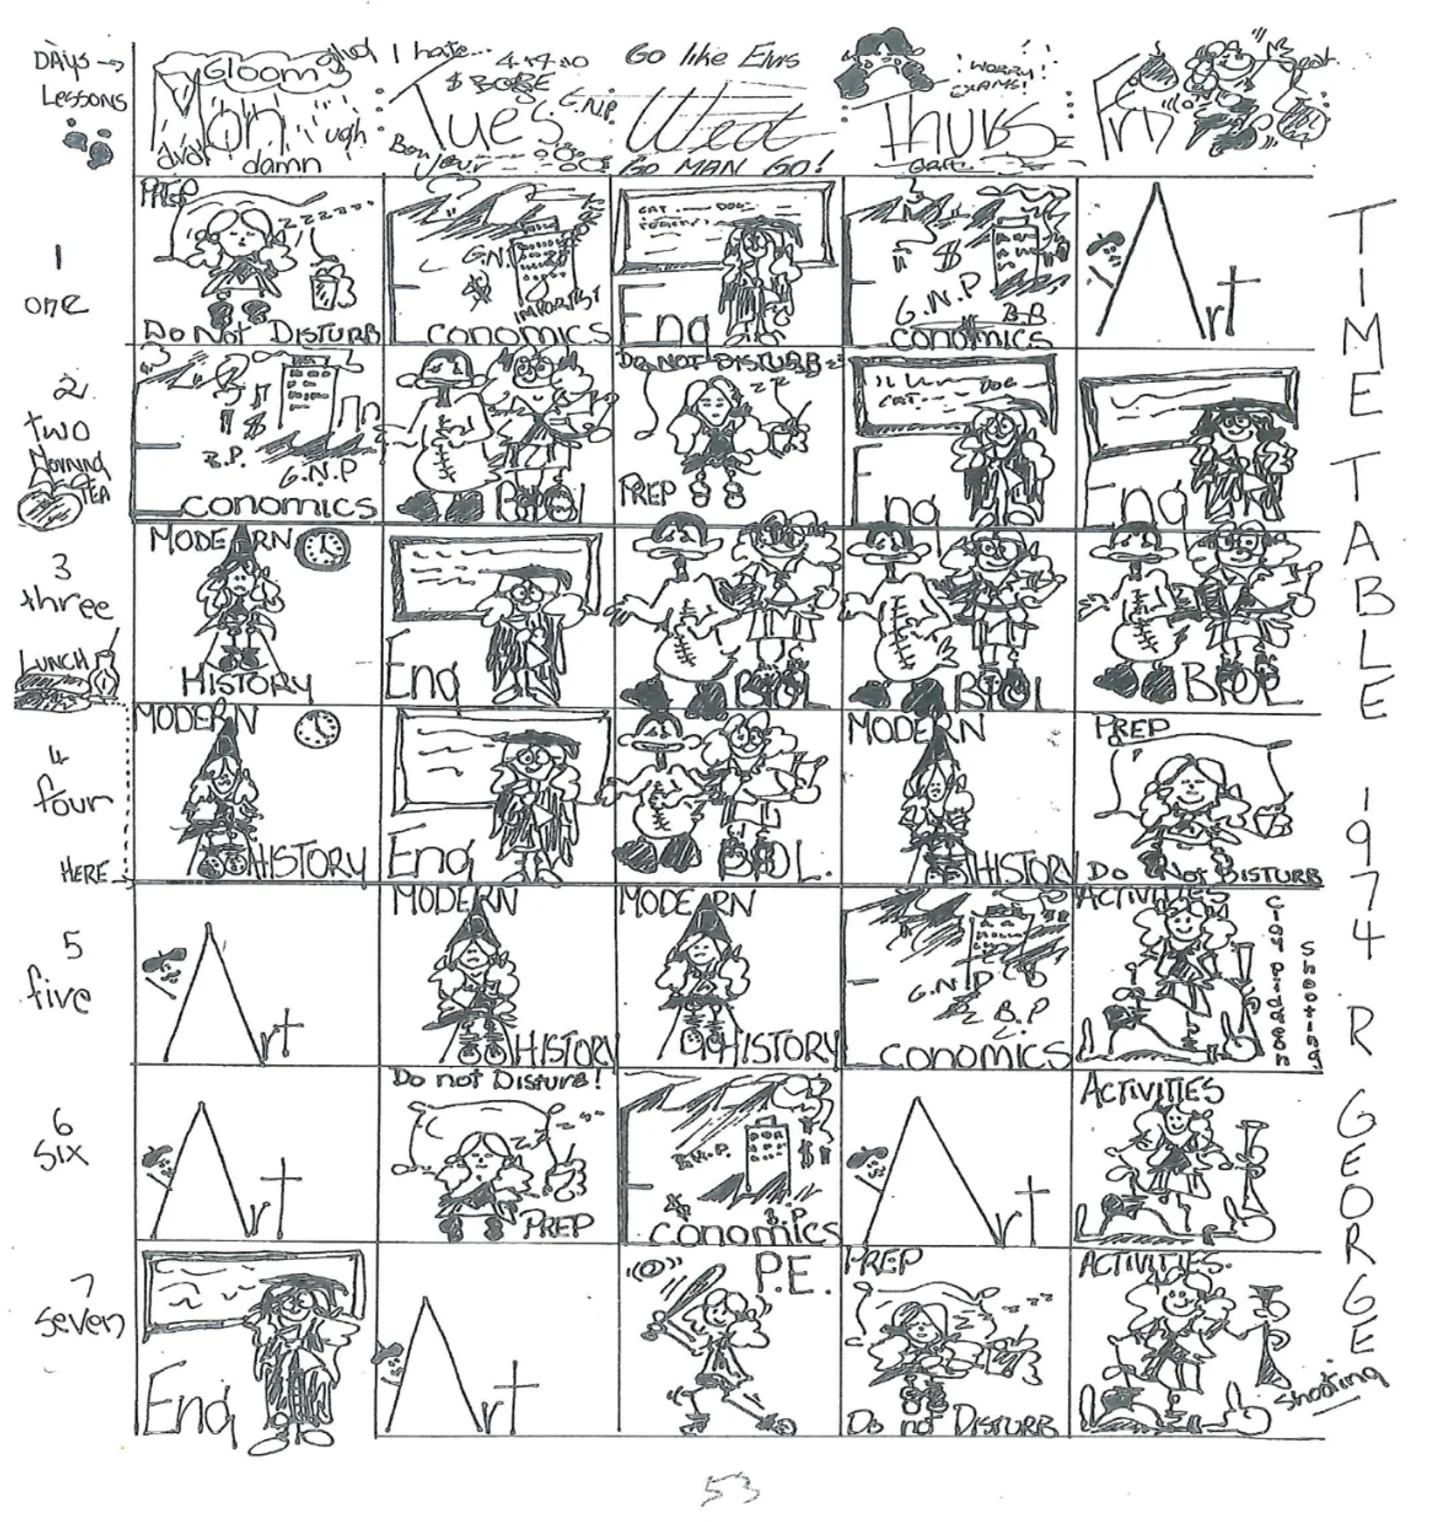 DAYS →
LESSONS
Gloom
Mon
ugh
damn
I hate...
4.14.20
$ BORE
G.N.P
Tues
Go like Elvis
Wed
GO MAN GO!
WORRY!
EXAMS!
Thurs
Fri
TIME TABLE 1974 R GEORGE
1
one
PREP
zzzzzz
DO NOT DISTURB
G.N.P
IMPORTS!
ECONOMICS
CAT DOG
Eng
$
G.N.P
B.B
ECONOMICS
Art
2
two
MORNING
TEA
$
B.P.
G.N.P
ECONOMICS
BIOL
DO NOT DISTURB
zz
PREP
DOG
CAT
Eng
Eng
3
three
MODERN
HISTORY
Eng
BIOL
BIOL
BIOL
LUNCH
4
four
HERE
MODERN
HISTORY
Eng
BIOL.
MODERN
HISTORY
PREP
DO NOT DISTURB
5
five
Art
MODERN
HISTORY
MODERN
HISTORY
G.N.P
B.P
ECONOMICS
ACTIVITIES
Clay piddeon
Shooting
6
six
Art
Do not Disturb!
PREP
$
B.P
ECONOMICS
Art
ACTIVITIES
7
seven
Eng
Art
P.E.
PREP
Do not DISTURB
ACTIVITIES.
Shooting
53